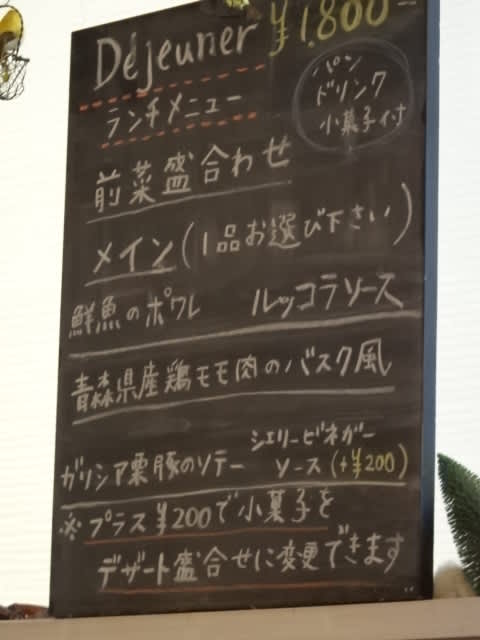 Déjeuner ¥1.800-
ランチメニュー
パン
ドリンク
小菓子付
前菜盛合わせ
メイン(1品お選び下さい)
鮮魚のポワレ ルッコラソース
青森県産鶏モモ肉のバスク風
ガリシア栗豚のソテー シェリービネガー
ソース(+¥200)
※プラス¥200で小菓子を
デザート盛合せに変更できます